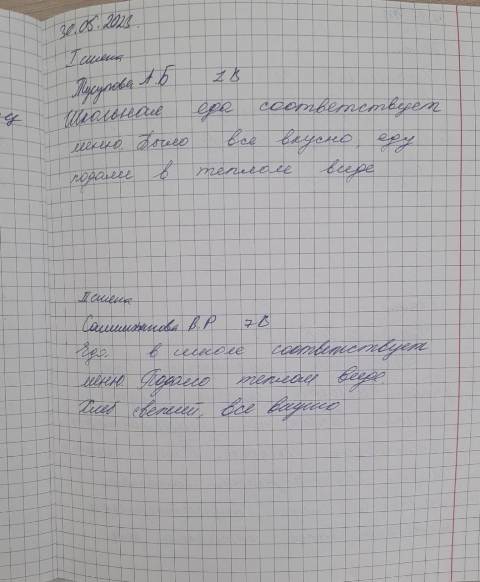 30.05.2023
I смена
Тусупова А Б 1 В
Школьная еда соответствует
меню. Было все вкусно, еду
подали в теплом виде
II смена
Салимжанова В.Р 7 В
Еда в школе соответствует
меню Подало теплом виде
Хлеб свежий, все вкусно